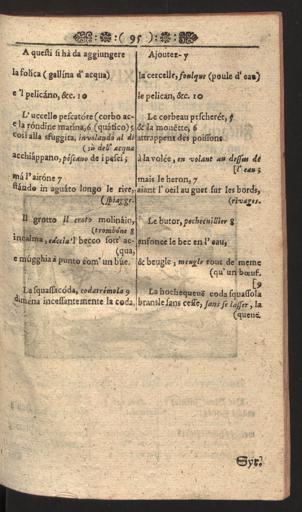 ( 95 )
A questi si hà da aggiungere
la folica (gallina d'acqua)
e 'l pelicáno, &c. 10
L'uccello pescatóre (corbo ac-
e la róndine marina, 6 (quático) 5
così alla sfuggita, involando al di
(sù dell' acqua
acchiáppano, píscano de i pesci;
mà l'airóne 7
stándo in aguáto longo le rive,
(spiagge.
Il grotto il croto molináio,
(trombóne 8
incalma, caccia 'l becco sott' ac-
(qua,
e mugghia à punto com' un búe.
La squassacóda, codatrémola 9
dimena incessantemente la coda.
Ajoutez-y
la cercelle, foulque (poule d'eau)
le pelican, &c. 10
Le corbeau pescherét, 5
& la mouëtte, 6
attrappent des poissons
à la volée, en volant au dessus de
[l'eau;
mais le heron, 7
aiant l'oeil au guet sur les bords,
(rivages.
Le butor, 8
enfonce le bec en l'eau,
& beugle, meugle tout de meme
(qu'un bœuf.
[9
La hochequeuë coda squassola
branle sans cesse, sans se lasser, la
(queuë.
Syr.